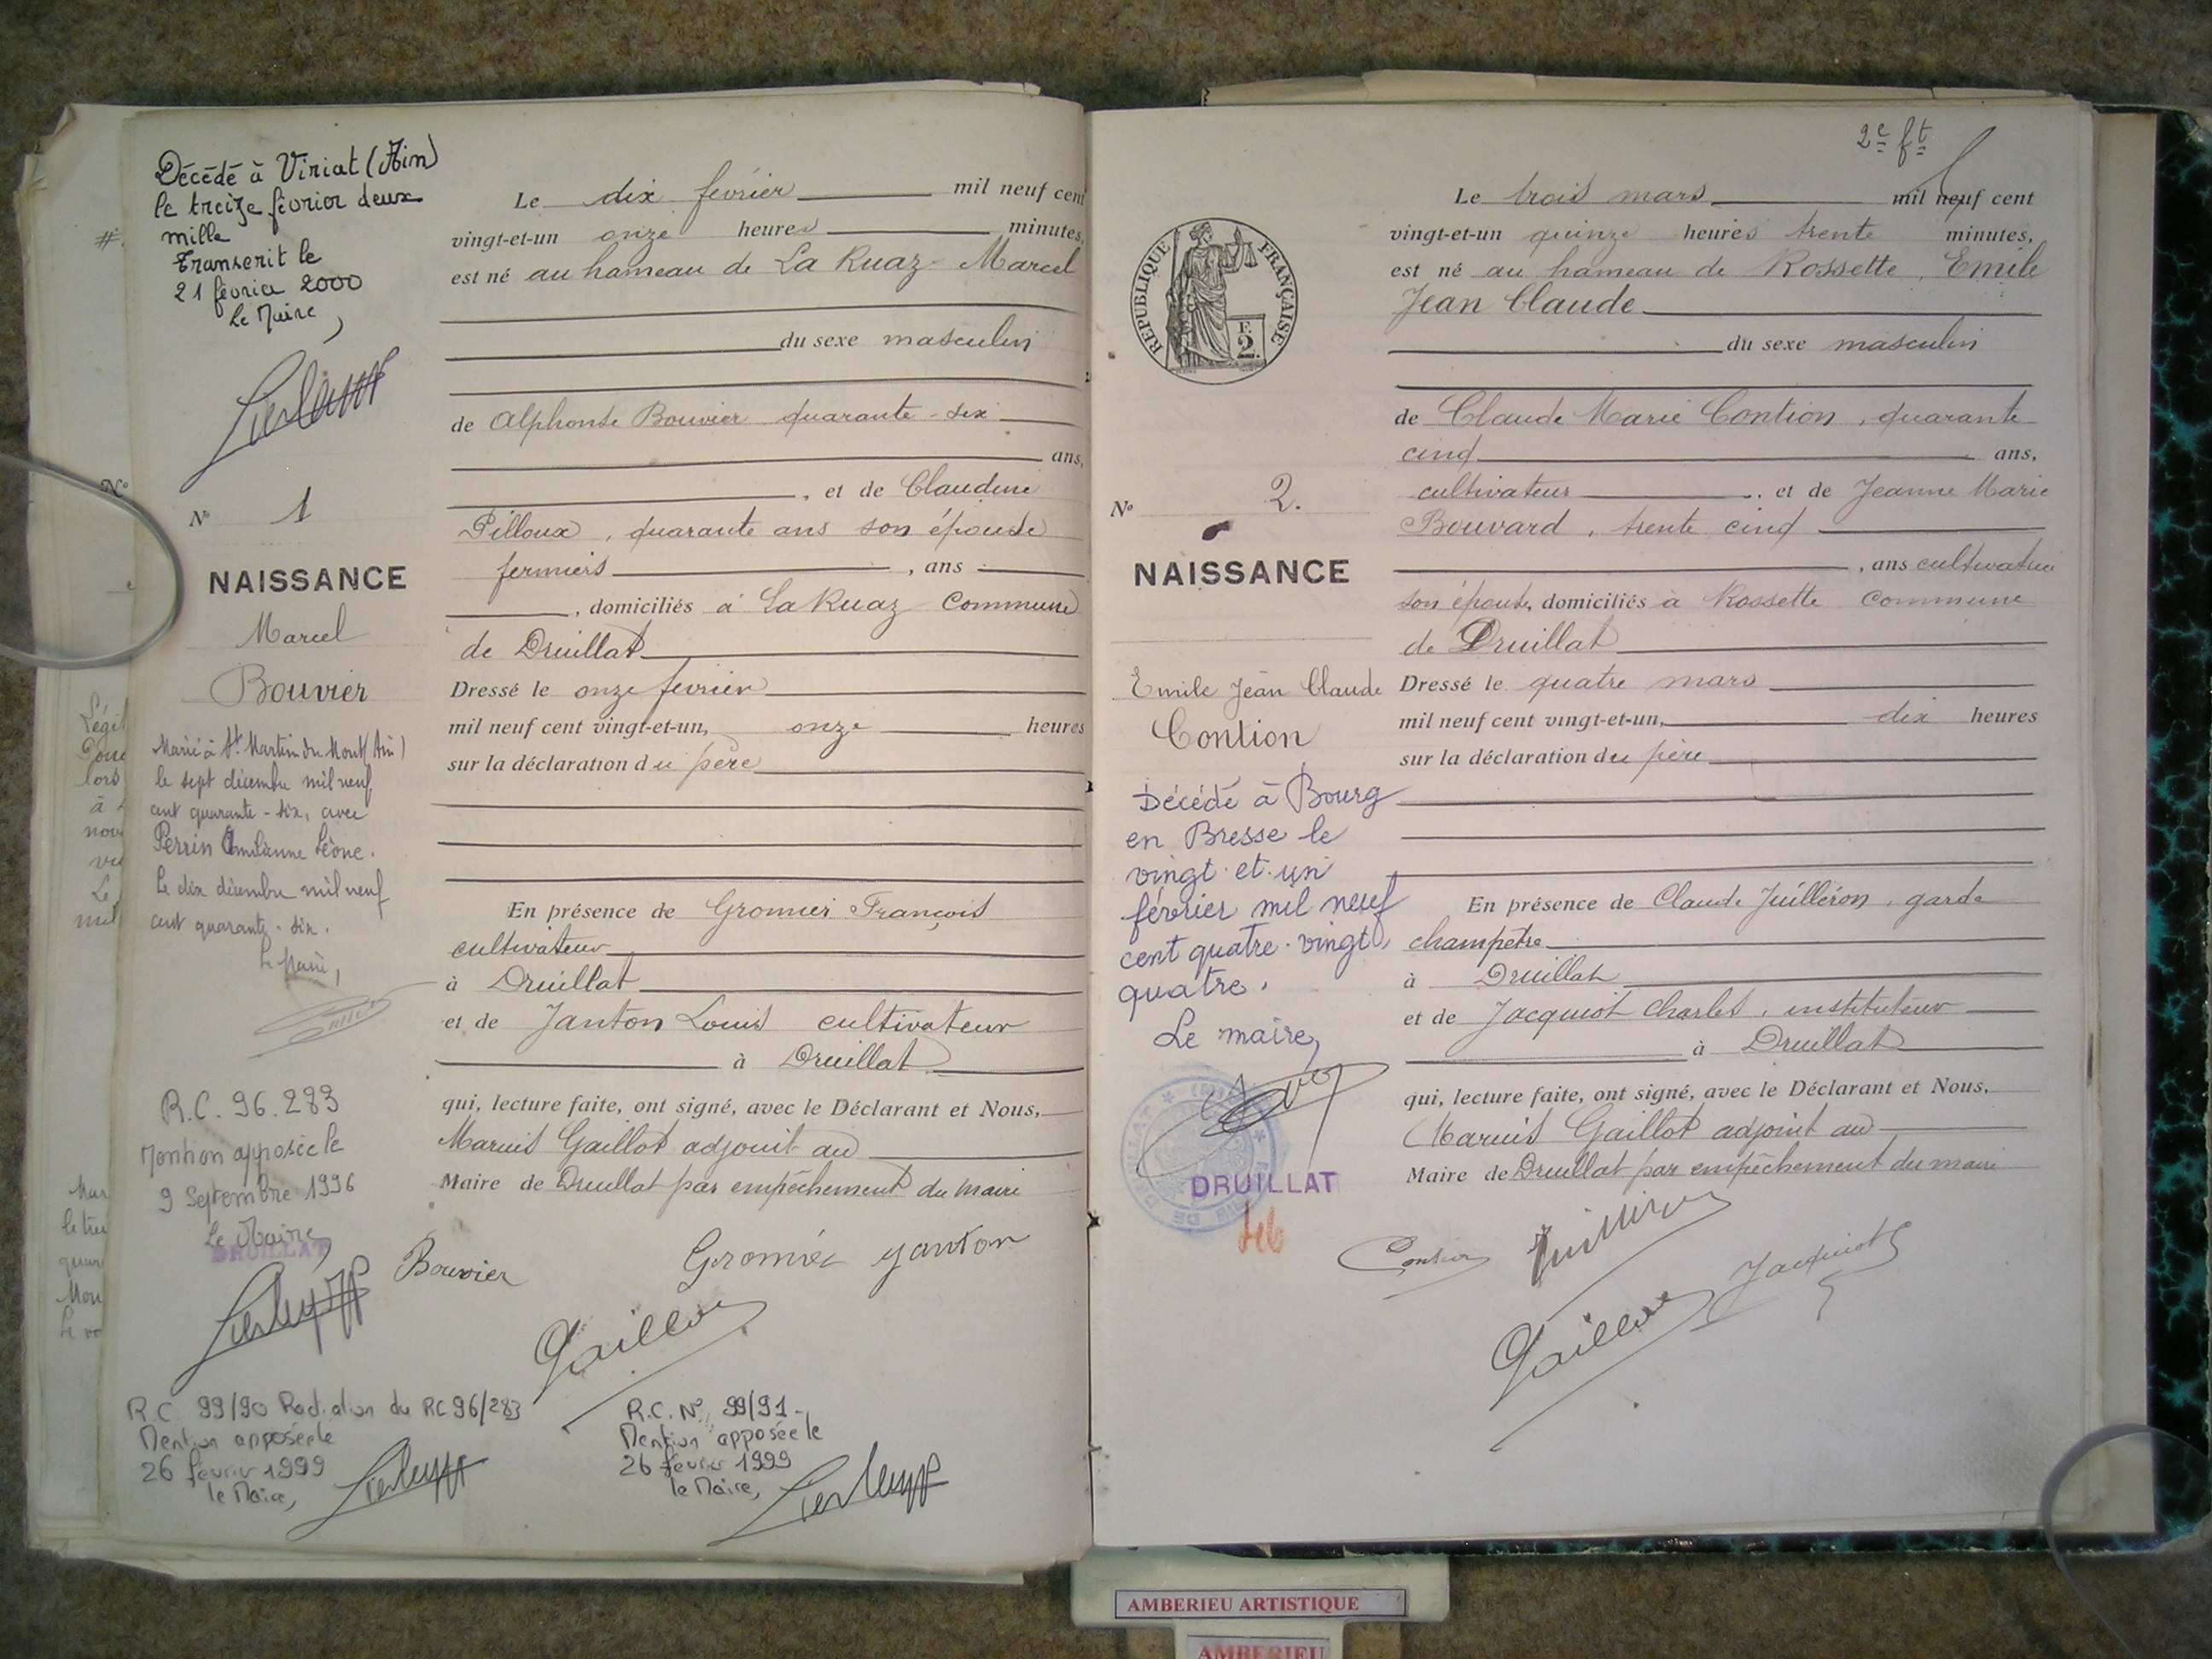 Décédé à Viriat (Ain)
le treize février deux
mille
Transcrit le
21 février 2000
Le Maire,
N° 1
NAISSANCE
Marcel
Bouvier
Marié à St Martin du Mont (Ain)
le sept décembre mil neuf
cent quarante-six, avec
Perrin Léone.
Le dix décembre mil neuf
cent quarante-six.
Le Maire,
R.C. 96.283
Mention apposée le
9 Septembre 1996
Le Maire,
DRUILLAT
Le dix février mil neuf cent
vingt-et-un onze heures minutes,
est né au hameau de La Ruaz Marcel
du sexe masculin
de Alphonse Bouvier quarante-six
ans,
, et de Claudine
Pilloux, quarante ans son épouse
fermiers , ans
, domiciliés à La Ruaz Commune
de Druillat
Dressé le onze février
mil neuf cent vingt-et-un, onze heures
sur la déclaration du père
En présence de Gromier François
cultivateur
à Druillat
et de Janton Louis cultivateur
à Druillat
qui, lecture faite, ont signé, avec le Déclarant et Nous,
Marius Gaillot adjoint au
Maire de Druillat par empêchement du maire
Bouvier Gromier Janton
Gaillot
R.C 99/90 Radiation du RC 96/283
Mention apposée le
26 février 1999
le Maire,
R.C. N° 99/91
Mention apposée le
26 février 1999
le Maire,
2e ft
REPUBLIQUE FRANÇAISE
2
N° 2.
NAISSANCE
Emile Jean Claude
Contion
Décédé à Bourg
en Bresse le
vingt-et-un
février mil neuf
cent quatre-vingt
quatre.
Le maire,
DRUILLAT
Le trois mars mil neuf cent
vingt-et-un quinze heures trente minutes,
est né au hameau de Rossette, Emile
Jean Claude
du sexe masculin
de Claude Marie Contion, quarante
cinq ans,
cultivateur , et de Jeanne Marie
Bouvard, trente cinq
, ans cultivatrice
son épouse, domiciliés à Rossette Commune
de Druillat
Dressé le quatre mars
mil neuf cent vingt-et-un, dix heures
sur la déclaration du père
En présence de Claude Juilléron, garde
champêtre
à Druillat
et de Jacquiot Charles, instituteur
à Druillat
qui, lecture faite, ont signé, avec le Déclarant et Nous,
Marius Gaillot adjoint au
Maire de Druillat par empêchement du maire
Contion Juilliron
Gaillot Jacquiot
AMBERIEU ARTISTIQUE
AMBERIEU